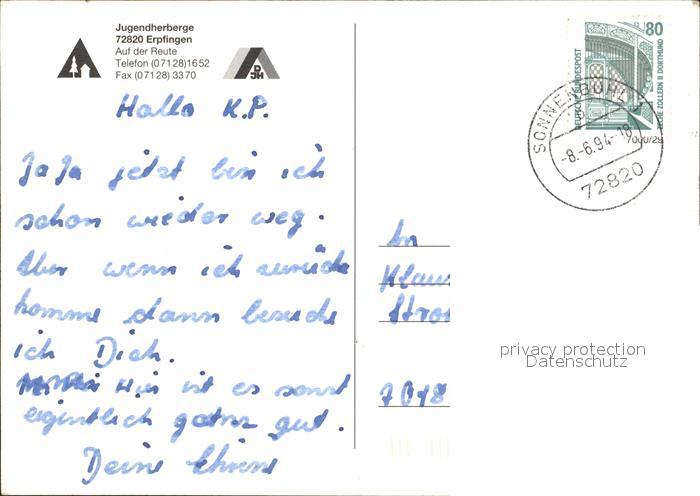 Jugendherberge
72820 Erpfingen
Auf der Reute
Telefon (07128)1652
Fax (07128) 3370
DJH
Hallo K.P.
Ja Ja jetzt bin ich
schon wieder weg.
Aber wenn ich zurück
komme dann besuche
ich Dich.
Hier ist es sonst
eigentlich ganz gut.
Deine
An
Klaus
7018
80
DEUTSCHE BUNDESPOST
ZECHE ZOLLERN II DORTMUND
SONNENBÜHL
-8.-6.94-18
7000/29
72820
privacy protection
Datenschutz